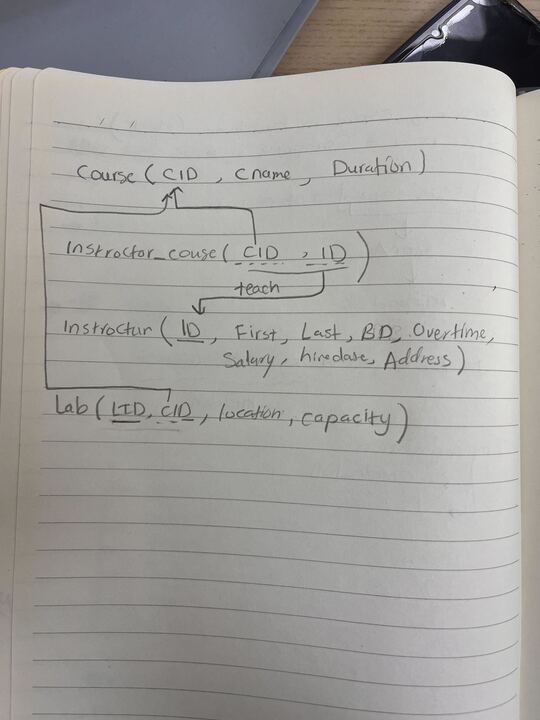 Course ( CID , Cname , Duration )
Instroctor_couse ( CID , ID )
teach
Instroctur ( ID , First , Last , BD , Overtime ,
Salary , hiredate , Address )
Lab ( LID , CID , location , capacity )